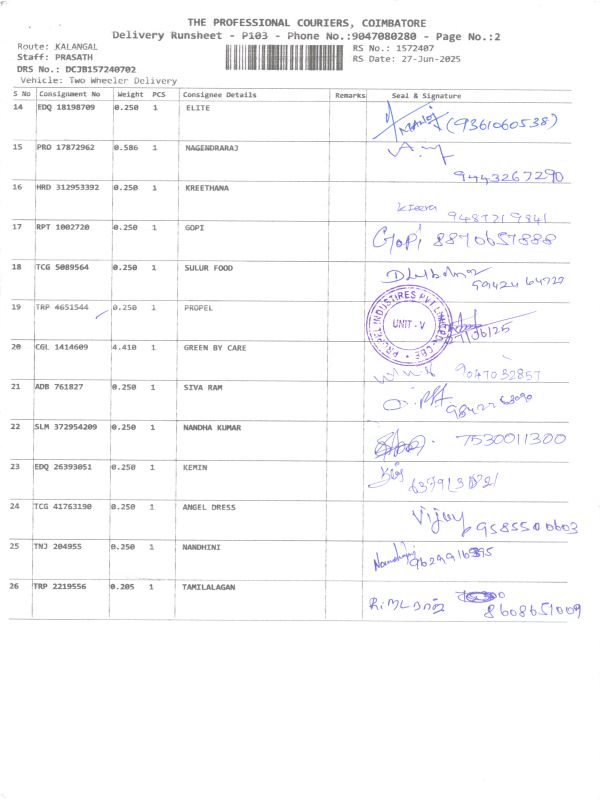 THE PROFESSIONAL COURIERS, COIMBATORE
Delivery Runsheet - P103 - Phone No.:9047080280 - Page No.:2
Route: KALANGAL RS No.: 1572407
Staff: PRASATH RS Date: 27-Jun-2025
DRS No.: DCJB157240702
Vehicle: Two Wheeler Delivery
S No Consignment No Weight PCS Consignee Details Remarks Seal & Signature
14 EDQ 18198709 0.250 1 ELITE (9361060538)
15 PRO 17872962 0.586 1 NAGENDRARAJ
9443267290
16 HRD 312953392 0.250 1 KREETHANA
9487719841
17 RPT 1002720 0.250 1 GOPI Gopi 8870657888
18 TCG 5089564 0.250 1 SULUR FOOD
19 TRP 4651544 0.250 1 PROPEL
PROPEL INDUSTIRES PVT LIMITED, CBE
UNIT - V
20 CGL 1414609 4.410 1 GREEN BY CARE
9047032857
21 ADB 761827 0.250 1 SIVA RAM
22 SLM 372954209 0.250 1 NANDHA KUMAR 7530011300
23 EDQ 26393051 0.250 1 KEMIN
24 TCG 41763190 0.250 1 ANGEL DRESS
Vijay 9585500603
25 TNJ 204955 0.250 1 NANDHINI
26 TRP 2219556 0.205 1 TAMILALAGAN
8608651009